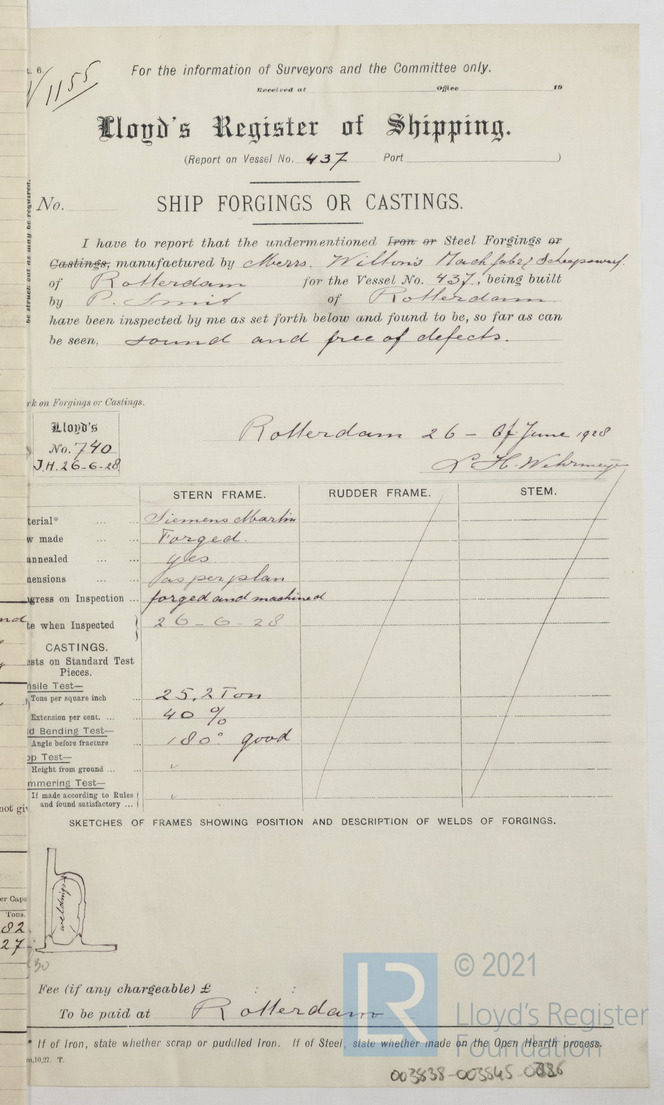 t. 6.
1155
For the information of Surveyors and the Committee only.
Received at Office 19
Lloyd's Register of Shipping.
(Report on Vessel No. 437 Port )
No. SHIP FORGINGS OR CASTINGS.
I have to report that the undermentioned Iron or Steel Forgings or
Castings, manufactured by Messrs. Wilton's Mach fabr & Scheepswerf.
of Rotterdam for the Vessel No. 437, being built
by P. Smit of Rotterdam
have been inspected by me as set forth below and found to be, so far as can
be seen, sound and free of defects.
be struck out as may be required.
rk on Forgings or Castings.
Lloyd's
No. 740
J.H. 26-6-28
Rotterdam 26 - Of June 1928
STERN FRAME. RUDDER FRAME. STEM.
terial* ... ... Siemens Martin
w made ... ... Forged.
annealed ... ... yes
mensions ... ... as per plan
gress on Inspection ... forged and machined
te when Inspected 26-6-28
CASTINGS.
sts on Standard Test
Pieces.
nsile Test—
Tons per square inch 25.2 Ton
Extension per cent. ... ... 40 %
d Bending Test—
Angle before fracture 180° good
op Test—
Height from ground ... ... "
mmering Test—
If made according to Rules
and found satisfactory ... "
not giv
SKETCHES OF FRAMES SHOWING POSITION AND DESCRIPTION OF WELDS OF FORGINGS.
welding
er Caps
Tons.
82
27
30
Fee (if any chargeable) £ : :
To be paid at Rotterdam
* If of Iron, state whether scrap or puddled Iron. If of Steel, state whether made on the Open Hearth process.
m,10,27. T.
© 2021
LR
Lloyd's Register
Foundation
003838-003845-0386